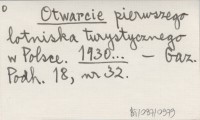 Otwarcie pierwszego
lotniska turystycznego
w Polsce. 1930... — Gaz.
Podh. 18, nr 32.